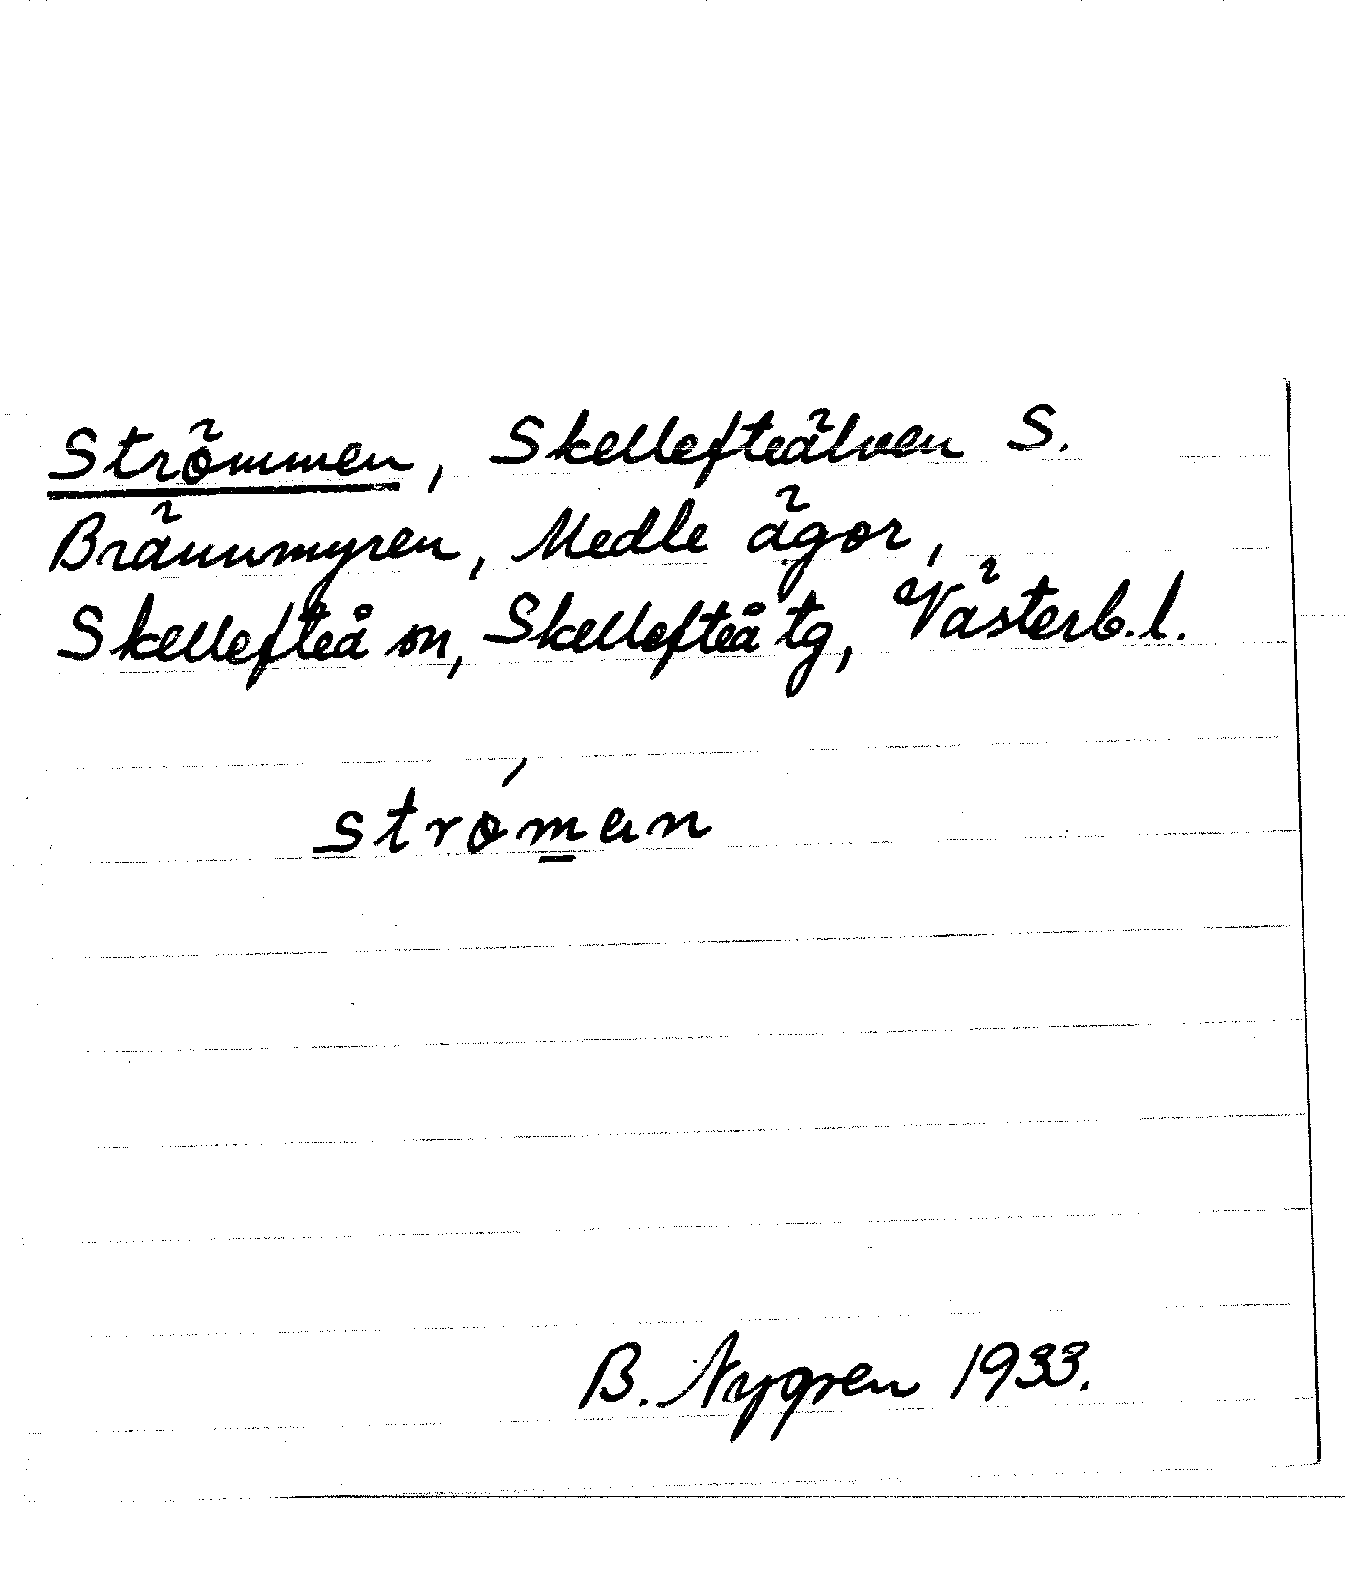 Strömmen, Skellefteälven S.
Brännmyren, Medle ägor,
Skellefteå sn, Skellefteå tg, Västerb.l.
B. Nygren 1933.